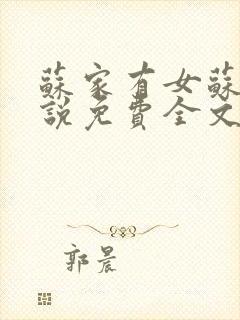 蘇家有女蘇
說免費全文
郭晨